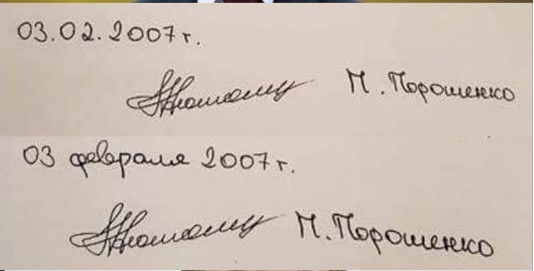 03.02.2007г.
М. Порошенко
03 февраля 2007г.
М. Порошенко